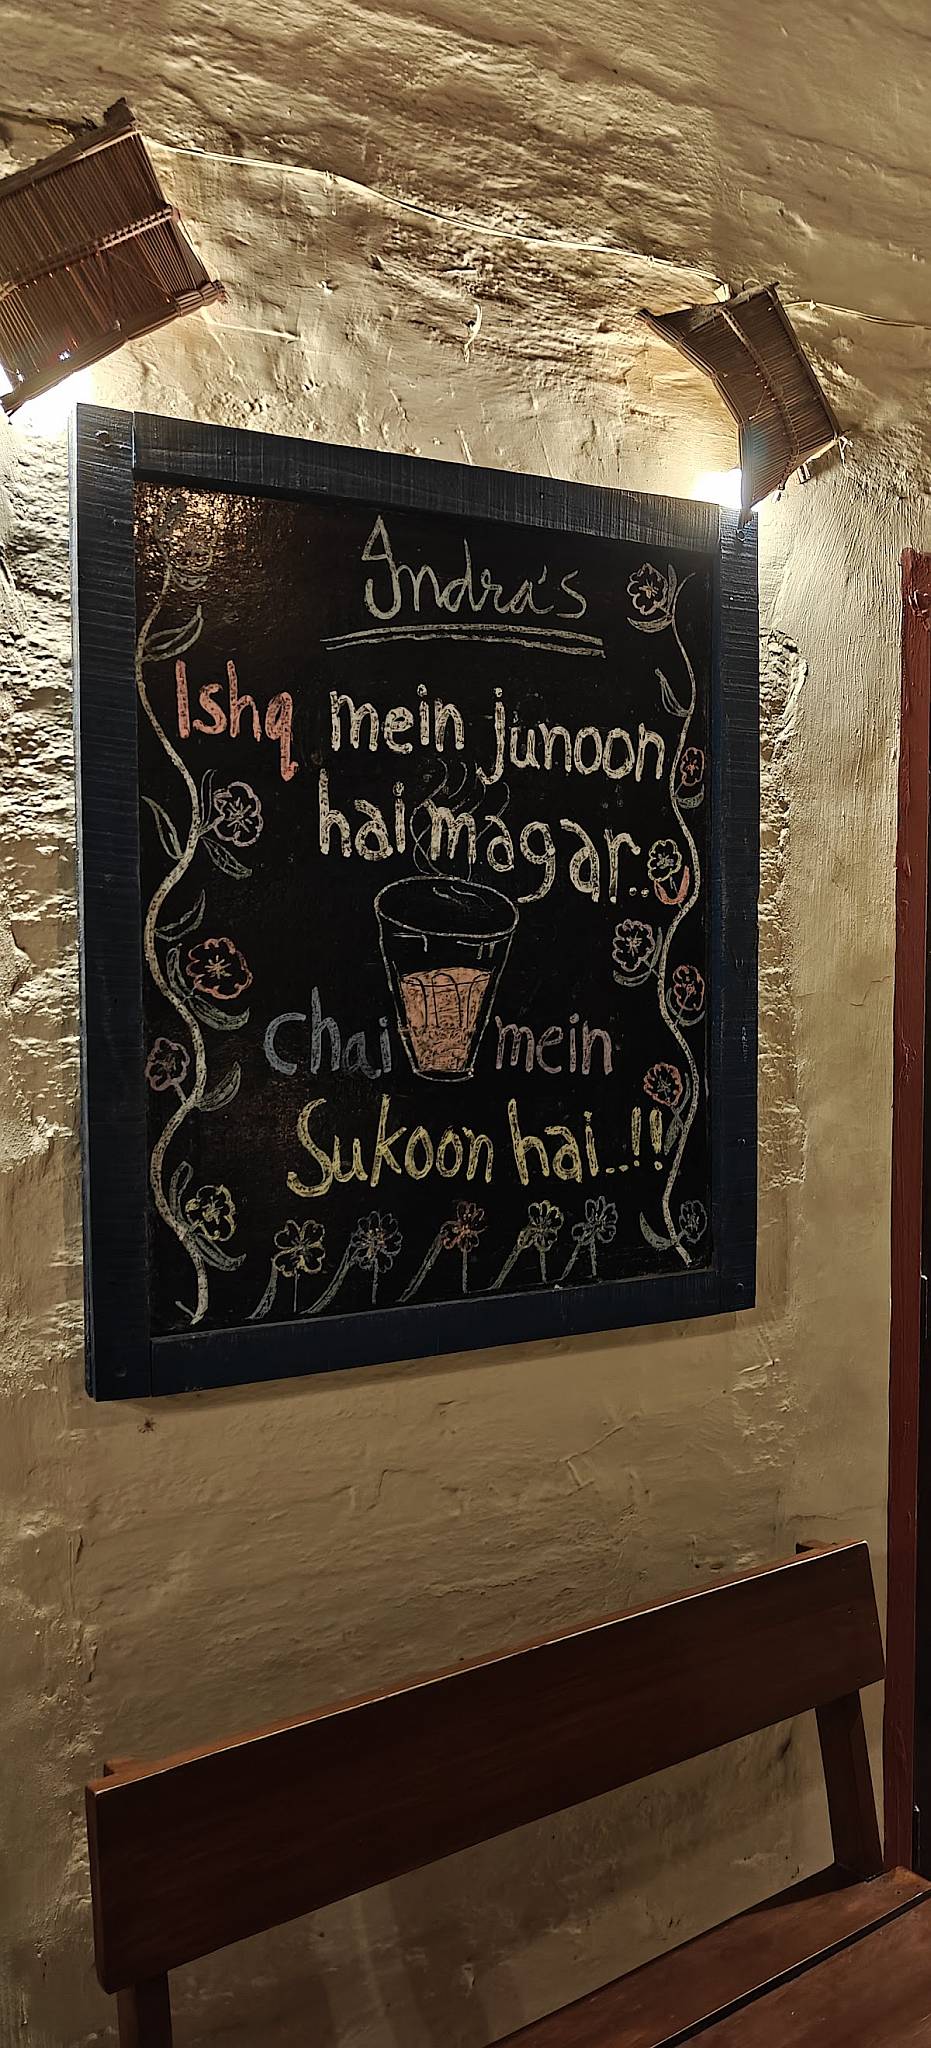 Indra's
Ishq mein junoon
hai magar..
chai mein
Sukoon hai...!!